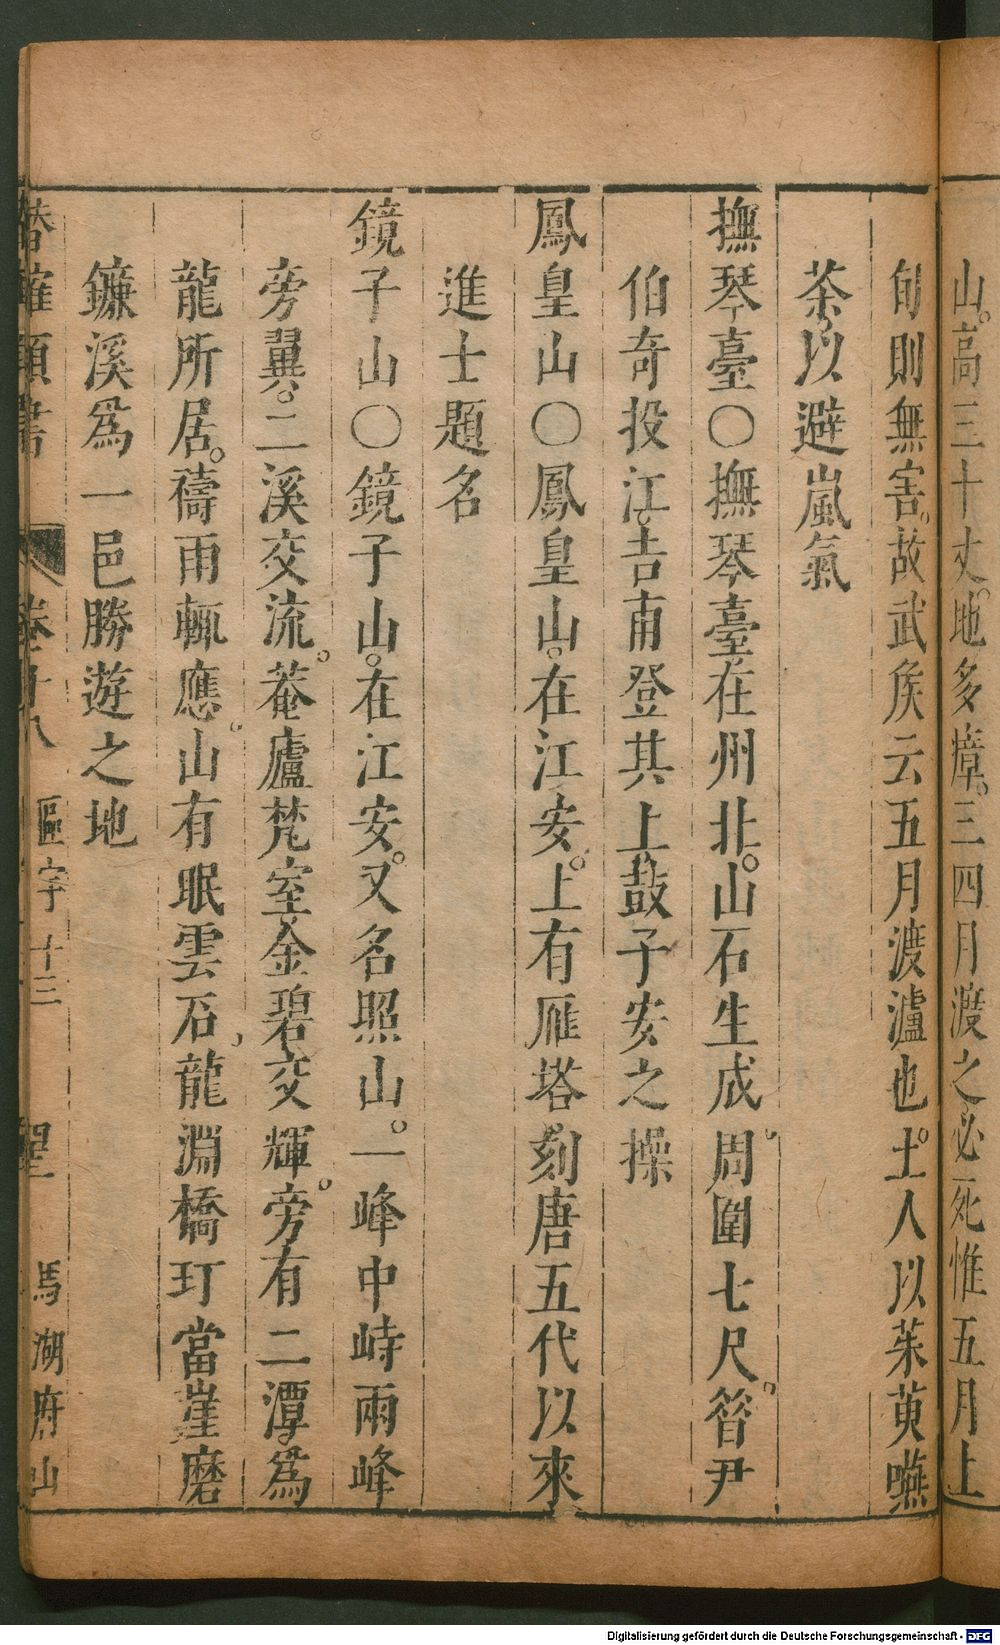 山。高三十丈。地多瘴。三四月渡之必死惟五月上
旬則無害。故武侯云五月渡瀘也。土人以茱萸嚥
茶。以避嵐氣
撫琴臺○撫琴臺在州北。山石生成。周圍七尺。昔尹
伯奇投江。吉甫登其上。鼓子安之操
鳳皇山○鳳皇山。在江安。上有雁塔。刻唐五代以來
進士題名
鏡子山○鏡子山。在江安。又名照山。一峰中峙。兩峰
旁翼。二溪交流。菴廬梵室。金碧交輝。旁有二潭。爲
龍所居。禱雨輒應。山有眠雲石。龍淵橋玎當崖磨
鐮溪爲一邑勝遊之地
潛確類書
卷十八 區宇十三
馬湖府山
Digitalisierung gefördert durch die Deutsche Forschungsgemeinschaft - DFG